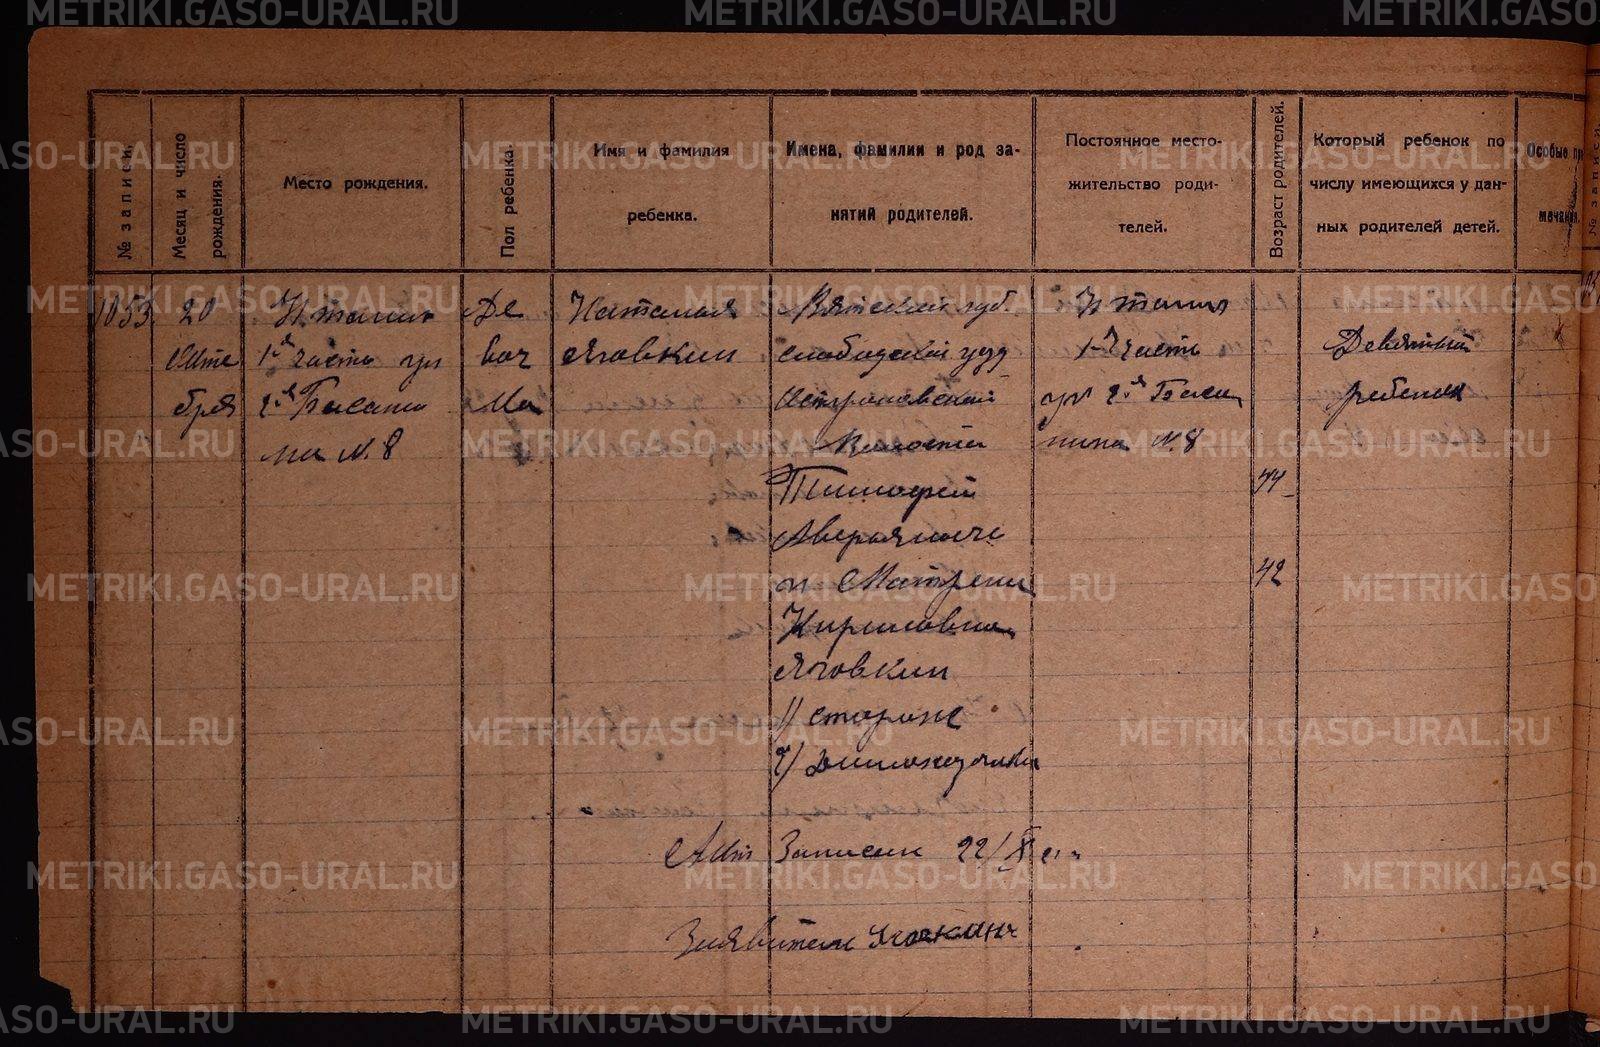 METRIKI.GASO-URAL.RU
№ записи.
Месяц и число рождения.
Место рождения.
Пол ребенка.
Имя и фамилия
ребенка.
Имена, фамилии и род за-
нятий родителей.
Постоянное место-
жительство роди-
телей.
Возраст родителей.
Который ребенок по
числу имеющихся у дан-
ных родителей детей.
Особые при
мечания.
1053.
20
Октя
бря
Н. Тагил
1-я часть ул
на N. 8
Де
воч
ка
Наталья
Яговкин
Вятской губ.
Слободской уезд
Волости
Тимофей
Аверьянович
и Матрена
Кириловна
Яговкин
1/ сторож
2/ домохозяйка
Н Тагил
1-я часть
ул 2-я
N. 8
44
42
Девятый
ребенок
Акт Записан 22/X
Заявитель Яговкинъ